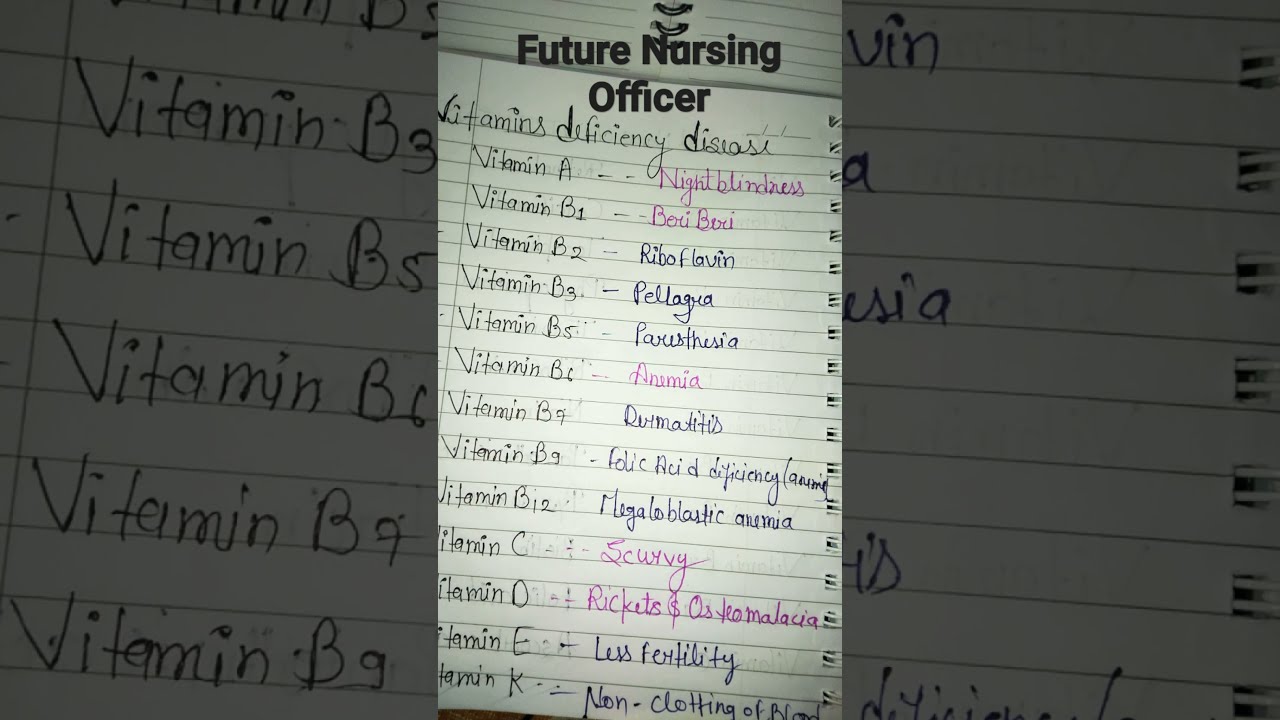 Future Nursing
Officer
Vitamins deficiency disease
Vitamin A - - Nightblindness
Vitamin B1 - - Beri Beri
Vitamin B2 - Riboflavin
Vitamin B3 - Pellagra
Vitamin B5 - Paresthesia
Vitamin B6 - Anemia
Vitamin B7 Dermatitis
Vitamin B9 - Folic Acid deficiency (
Vitamin B12 Megaloblastic anemia
itamin C - ÷ - Scurvy
itamin D - + Rickets & Osteomalacia
itamin E - Less Fertility
tamin K - Non-clotting of Blood
Vitamin B3
Vitamin B5
Vitamin B6
Vitamin B7
Vitamin B9
vin
a
esia
tis
deficiency (